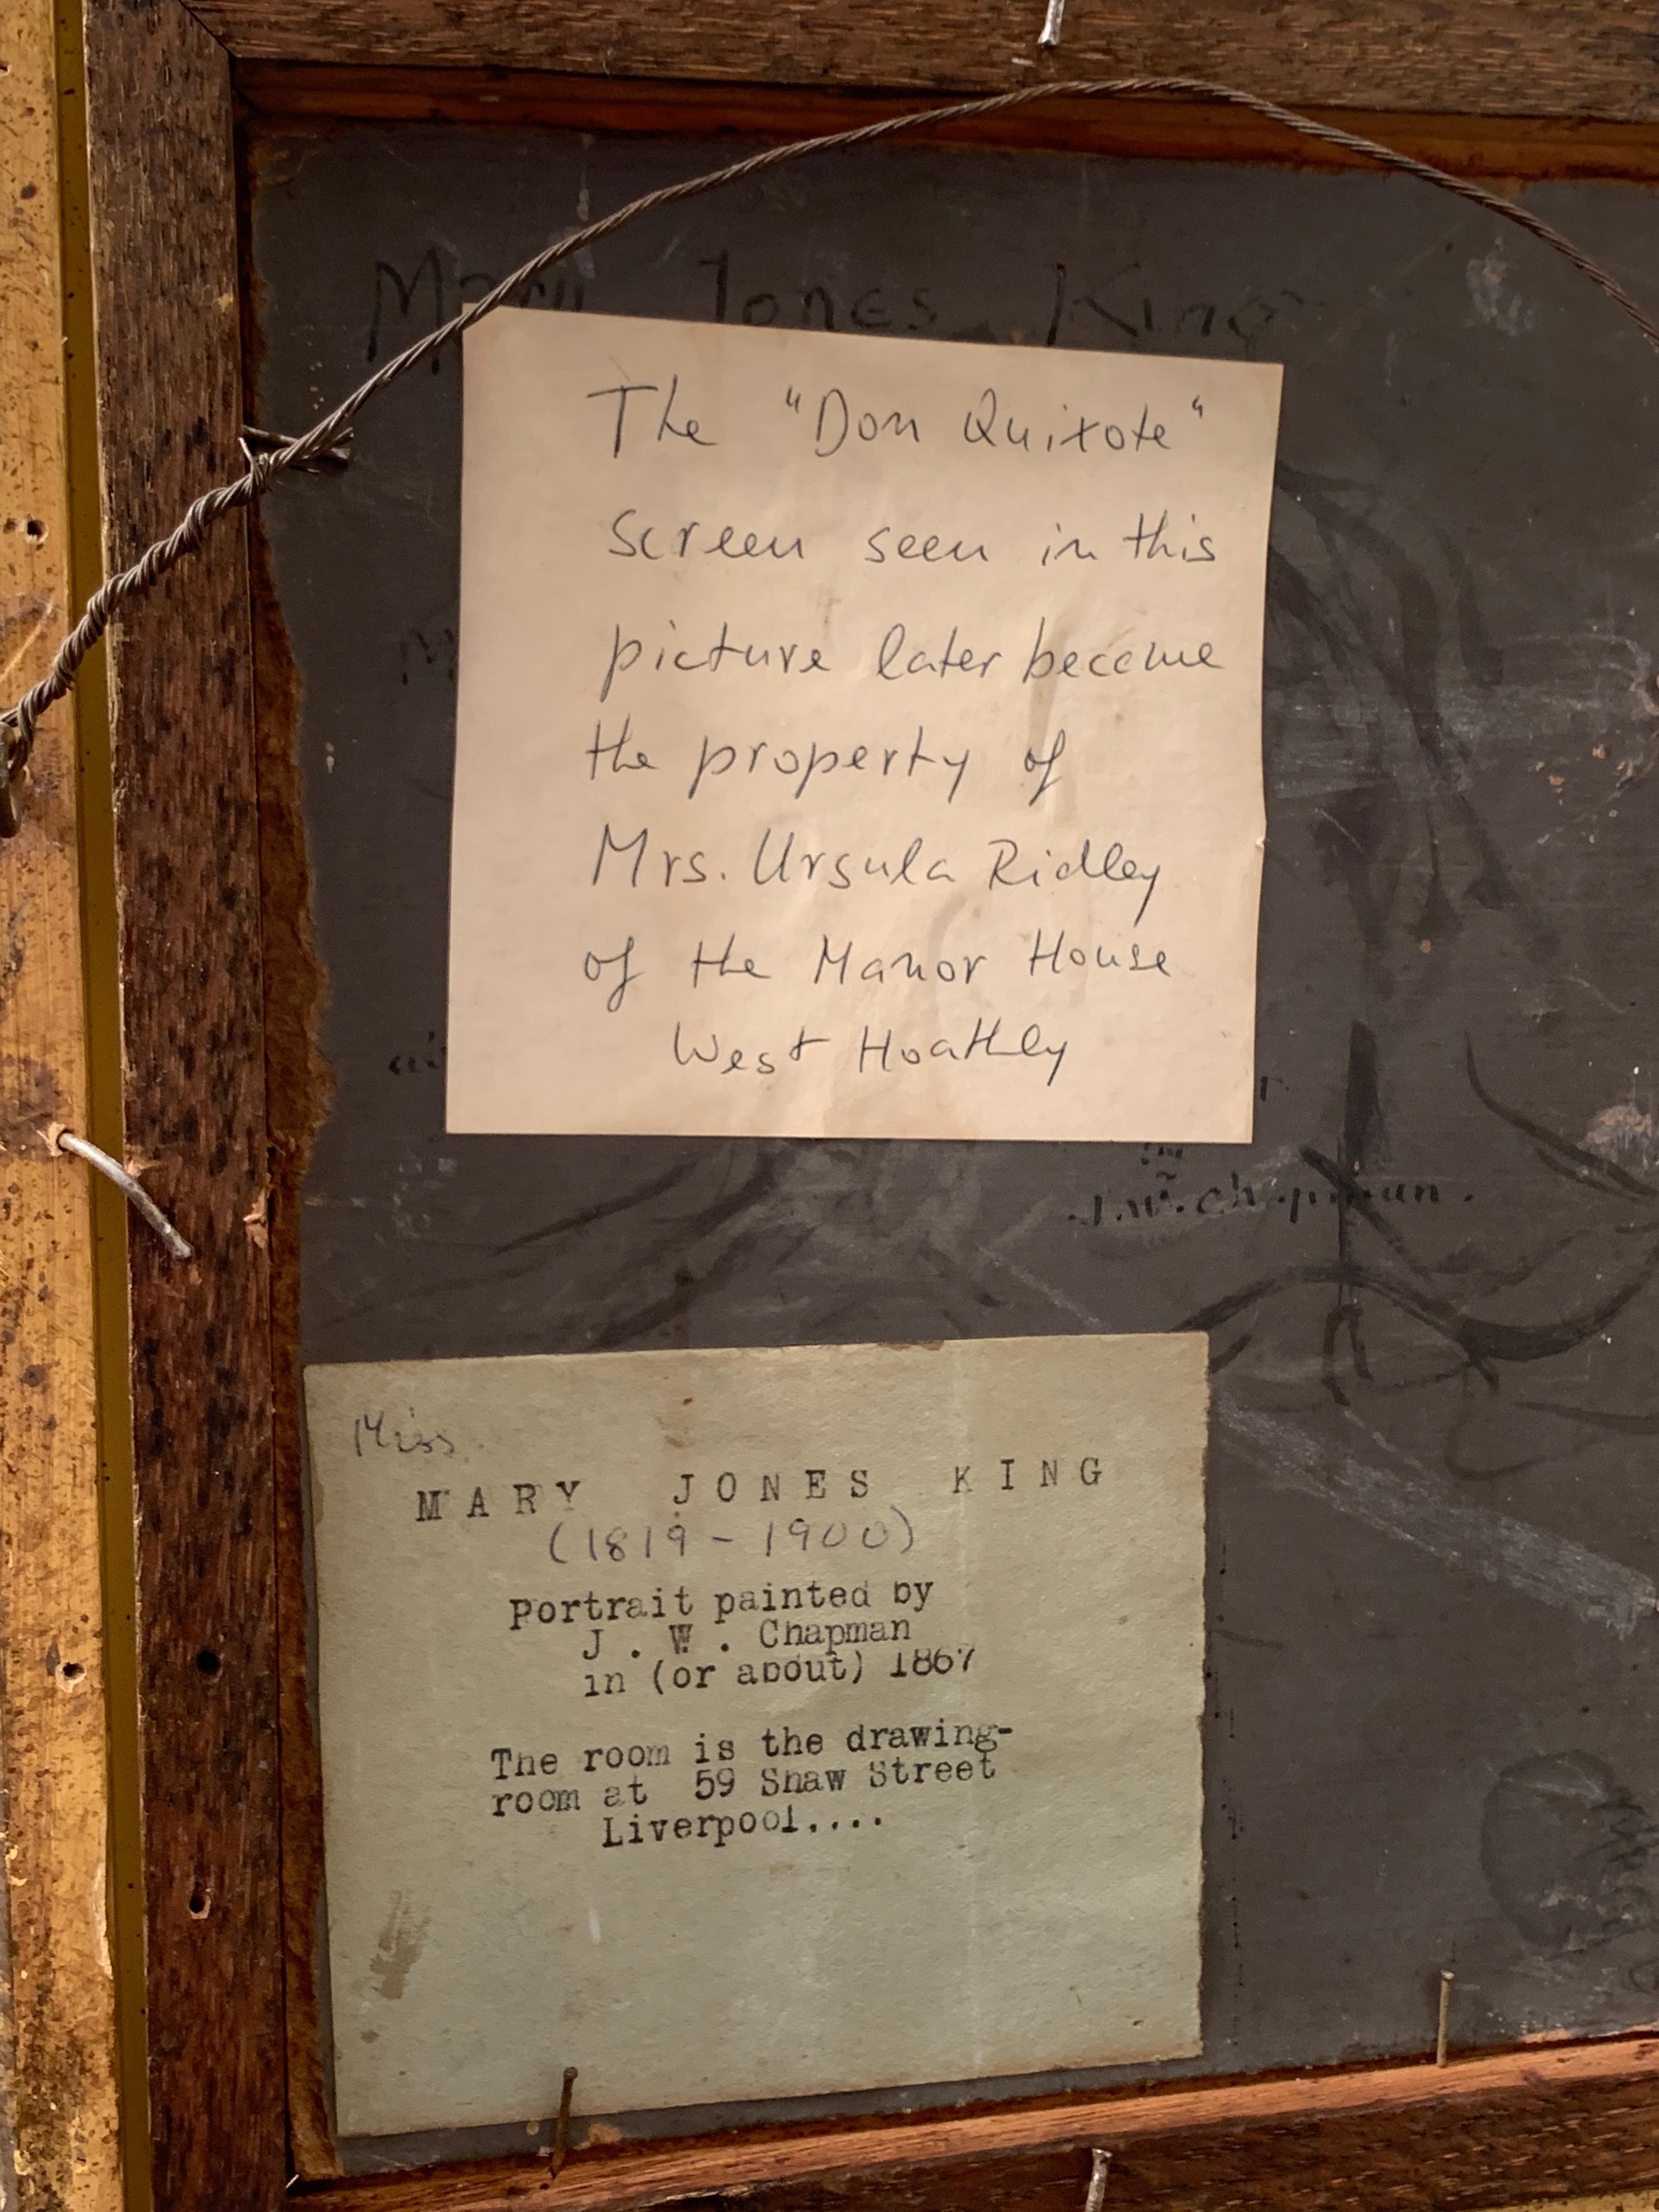 Mary Jones King
The "Don Quixote"
screen seen in this
picture later became
the property of
Mrs. Ursula Ridley
of the Manor House
West Hoathly
J.W. Chapman.
Miss
MARY JONES KING
(1819-1900)
Portrait painted by
J. W. Chapman
in (or about) 1867
The room is the drawing-
room at 59 Shaw Street
Liverpool....